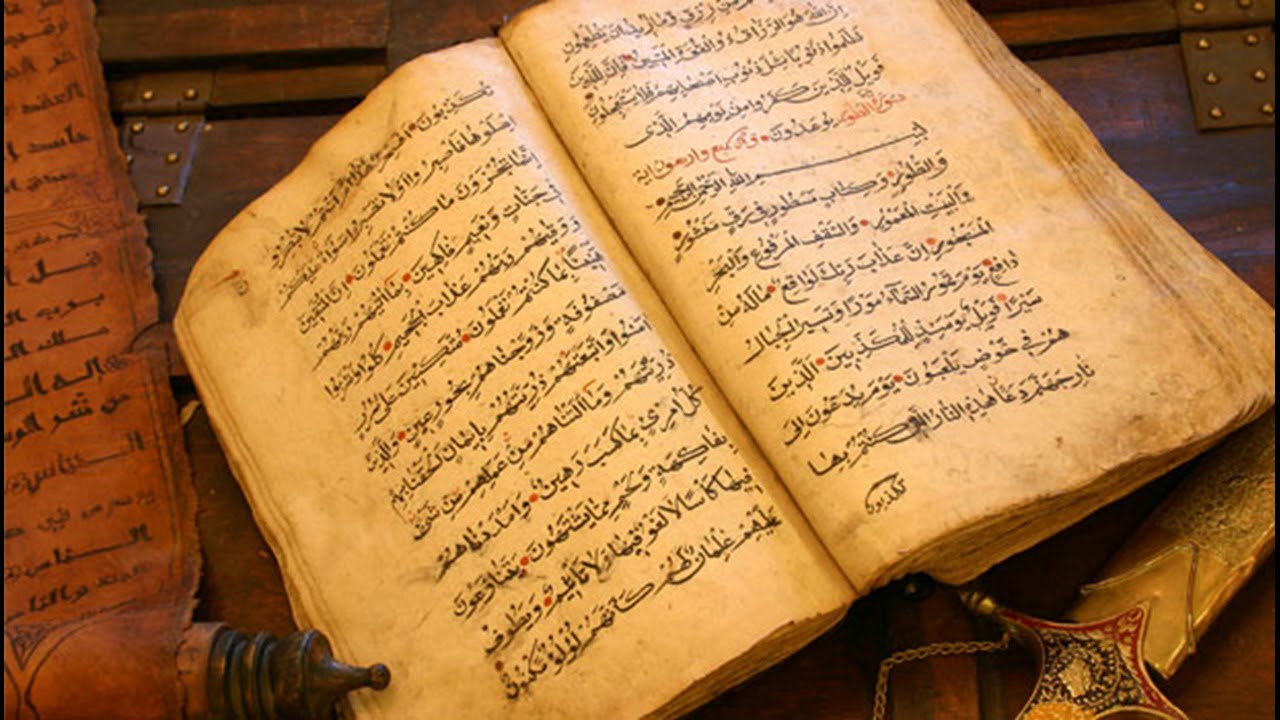 من رزق وما أريد أن يطعمون
إن الله هو الرزاق ذو القوة المتين فإن للذين
ظلموا ذنوبا مثل ذنوب أصحابهم فلا يستعجلون
فويل للذين كفروا من يومهم الذي
سورة الطور يوعدون وهي سبع واربعون اية
بسم الله الرحمن الرحيم
والطور وكتاب مسطور في رق منشور
والبيت المعمور والسقف المرفوع والبحر
المسجور إن عذاب ربك لواقع ماله من
دافع يوم تمور السماء مورا وتسير الجبال
سيرا فويل يومئذ للمكذبين الذين
هم في خوض يلعبون يوم يدعون إلى
نار جهنم دعا هذه النار التي كنتم بها
تكذبون
تكذبون أفسحر هذا أم أنتم لا تبصرون
اصلوها فاصبروا أولا تصبروا سواء عليكم
إنما تجزون ما كنتم تعملون إن المتقين
في جنات ونعيم فاكهين بما آتاهم ربهم
ووقاهم ربهم عذاب الجحيم كلوا واشربوا
هنيئا بما كنتم تعملون متكئين على سرر
مصفوفة وزوجناهم بحور عين والذين
آمنوا واتبعتهم ذريتهم بإيمان ألحقنا بهم
ذريتهم وما ألتناهم من عملهم من شيء
كل امرئ بما كسب رهين وأمددناهم
بفاكهة ولحم مما يشتهون يتنازعون
فيها كأسا لا لغو فيها ولا تأثيم ويطوف
عليهم غلمان لهم كأنهم لؤلؤ مكنون
العقد
حاسد
قل
برب
ملك
اله
من شر الو
الخناس
في
الناس